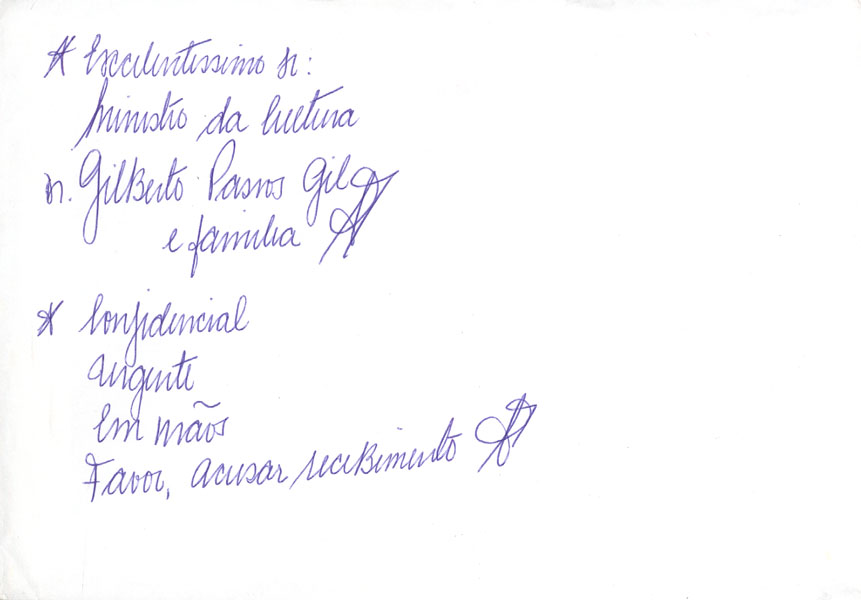 * Excelentissimo Sr:
Ministro da Cultura
Sr. Gilberto Passos Gil
e família
* Confidencial
Urgente
Em mãos
Favor, acusar recebimento